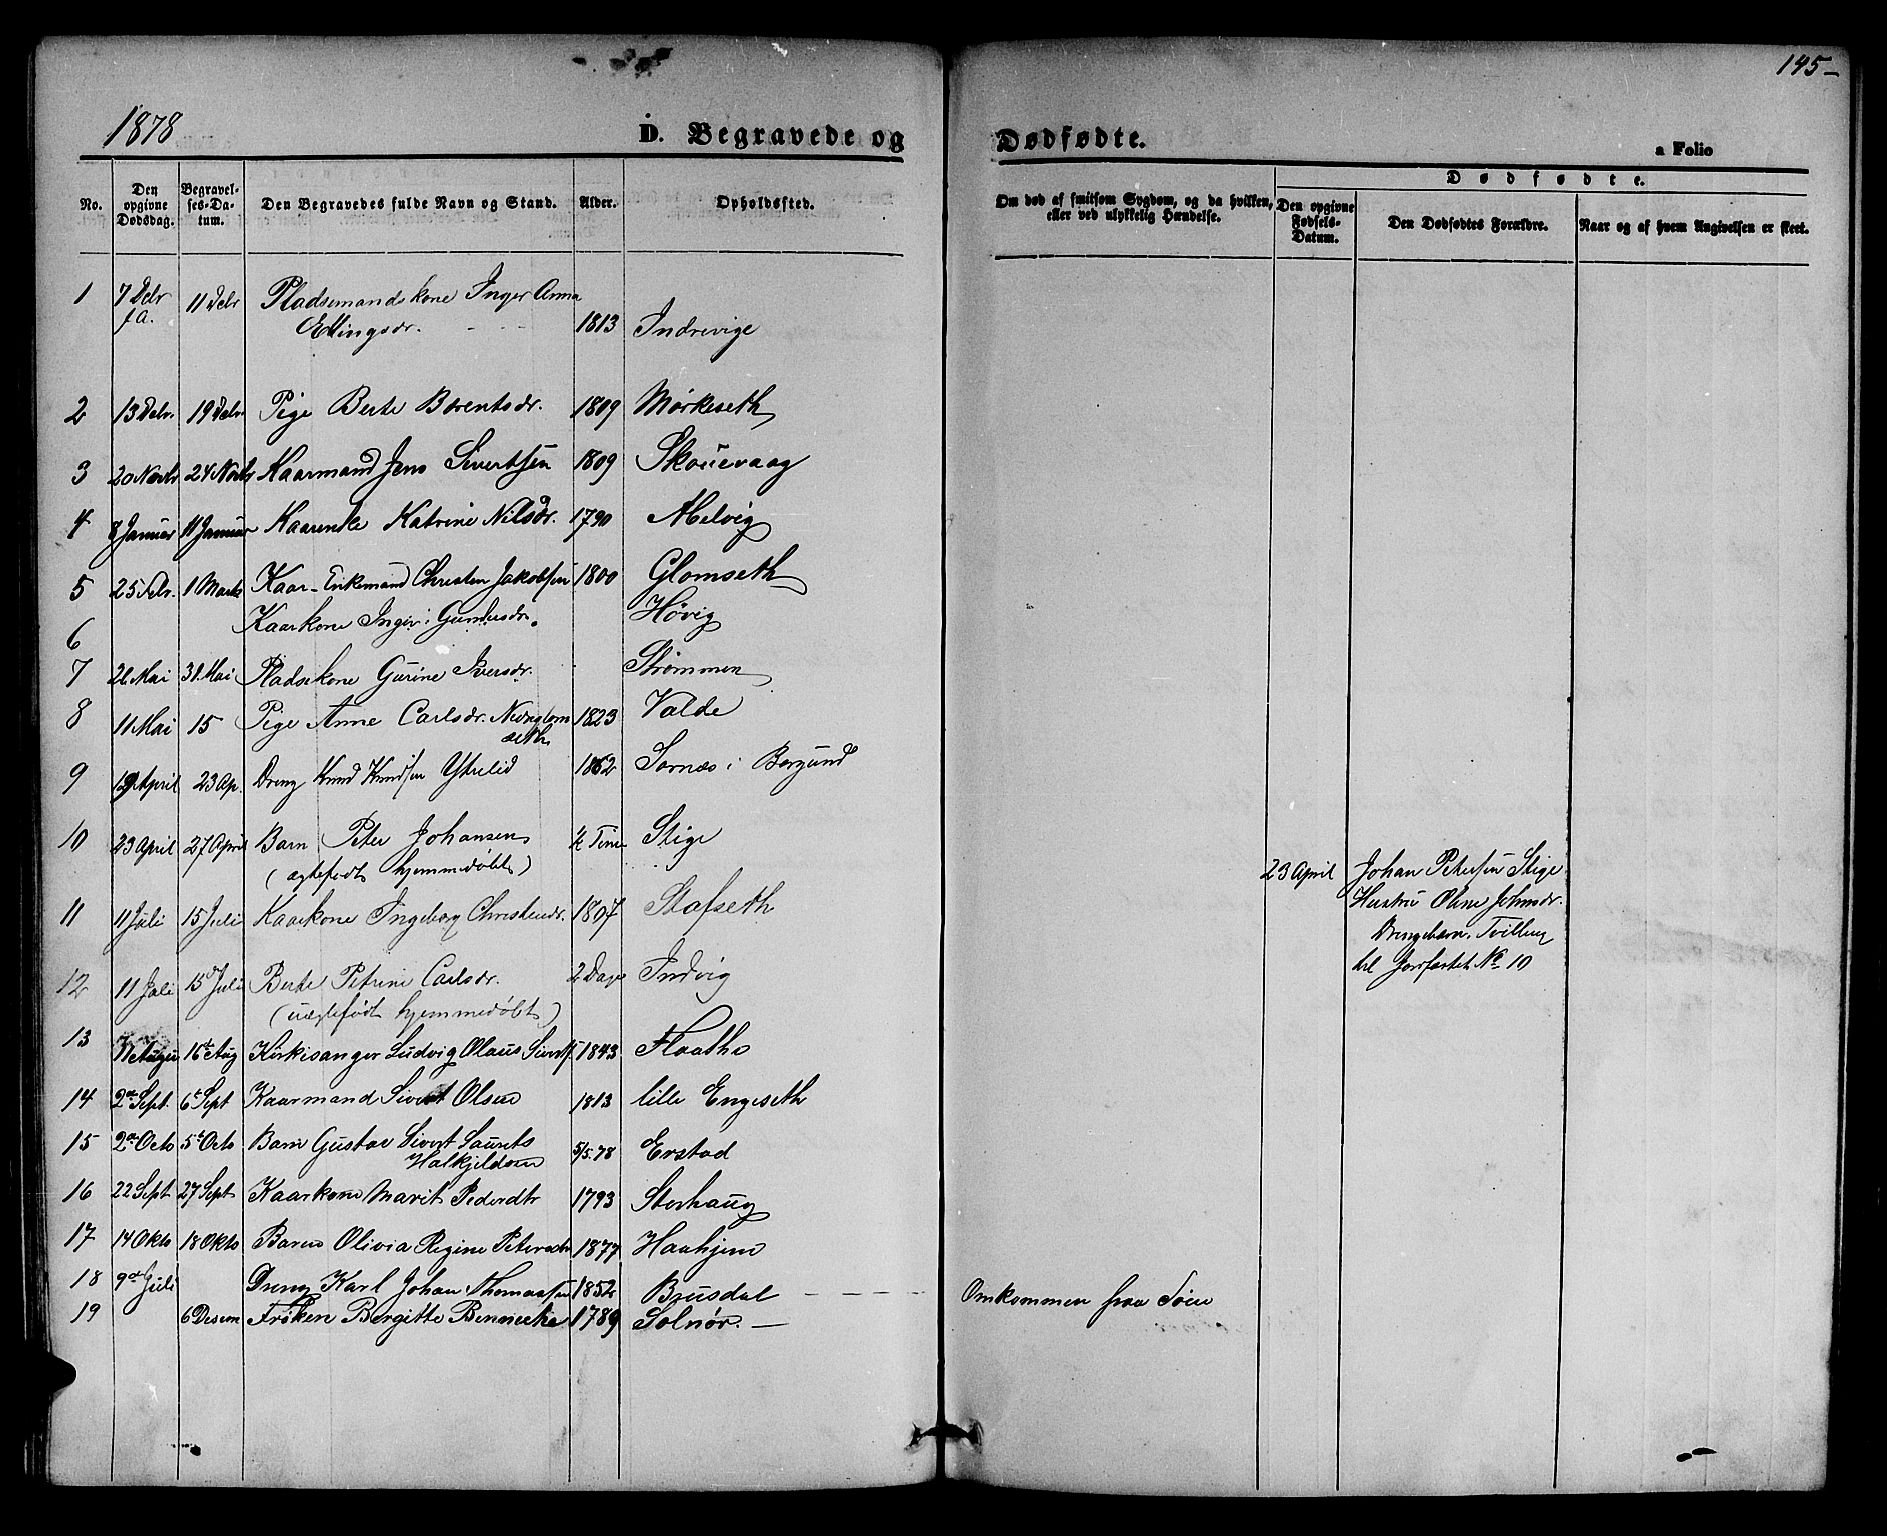 145-
1878
D. Begravede og
Dødfødte.
a Folio
No.
Den opgivne Dødsdag.
Begravelses-Datum.
Den Begravedes fulde Navn og Stand.
Alder.
Opholdssted.
Om død af smitsom Sygdom, og da hvilken, eller ved ulykkelig Hændelse.
Dødfødte.
Den opgivne Fødsels-Datum.
Den Dødfødtes Forældre.
Naar og af hvem Angivelsen er skeet.
1 7 Debr f.A. 11 Debr Pladsemandskone Inger Anna
Ellingsdr. 1813 Indrevige
2 13 Debr. 19 Debr. Pige Berte Berentsdr. 1809 Mørkeseth
3 20 Novbr 24 Novbr Kaarmand Jens Sivertsen 1809 Skouevaag
4 8 Januar 11 Januar Kaarenke Katrine Nilsdr. 1790 Melvig
5 25 1 Marts Kaar-Enkemand Christen Jakobsen 1800 Glomseth
6 Kaarkone Ingeri Gundersdr. Høvig
7 26 Mai 31. Mai Pladsekone Gurine Iversdr. Strømmen
8 11 Mai 15 Pige Anne Carlsdr. Nedreglom 1823 Valde
seth
9 19 April 23 Ap. Dreng Knud Knudsen Ytrelid 1862 Sornæs i Borgund
10 23 April 27 April Barn Peter Johansen ½ Time Stige
(ægtefødt hjemmedøbt)
23 April Johan Petersen Stige
Hustru Oline Johnsdr.
Drengebarn, Tvilling
til foranførte No 10
11 11 Juli 15 Juli Kaarkone Ingeborg Christensdr. 1807 Stafseth
12 11 Juli 15 Juli Berte Petrine Carlsdr. 2 Dage Indvig
(uægtefødt hjemmedøbt)
13 11 August 16t Aug Kirkesanger Ludvig Olaus Sivertsen 1843 Flaathe
14 2den Sept. 6t Sept Kaarmand Sivert Olsen 1813 lille Engeseth
15 2den Octo 5t Octo Barn Gustav Sivert Laurits
Halkjeldsen 5/5.78 Erstad
16 22 Sept 27 Sept Kaarkone Marit Pedersdtr 1793 Storhaug
17 14 Okto 18 Okto Barn Olivia Regine Petersdtr 1877 Haahjem
18 9de Juli Dreng Karl Johan Thomassen 1852 Brusdal - - - - Omkommen paa Søen
19 6 Desem Frøken Bergitte Bennecke 1789 Solnør. -